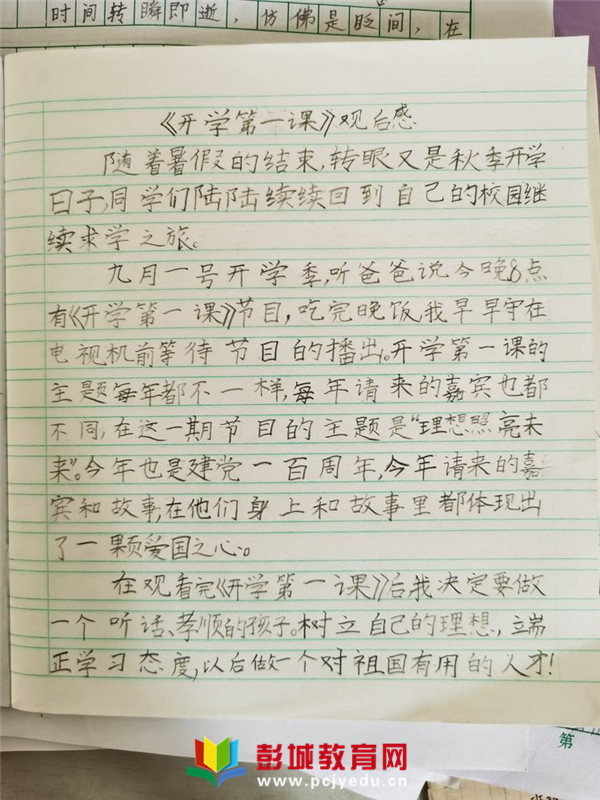 时间转瞬即逝，仿佛是眨间，在
《开学第一课》观后感
随着暑假的结束,转眼又是秋季开学
日子,同学们陆陆续续回到自己的校园继
续求学之旅。
九月一号开学季,听爸爸说今晚8点
有《开学第一课》节目,吃完晚饭,我早早守在
电视机前等待节目的播出。开学第一课的
主题每年都不一样,每年请来的嘉宾也都
不同,在这一期节目的主题是“理想照亮未
来”。今年也是建党一百周年,今年请来的嘉
宾和故事,在他们身上和故事里都体现出
了一颗爱国之心。
在观看完《开学第一课》后我决定要做
一个听话、孝顺的孩子。树立自己的理想,端
正学习态度,以后做一个对祖国有用的人才!
第
彭城教育网
www.pcjyedu.cn